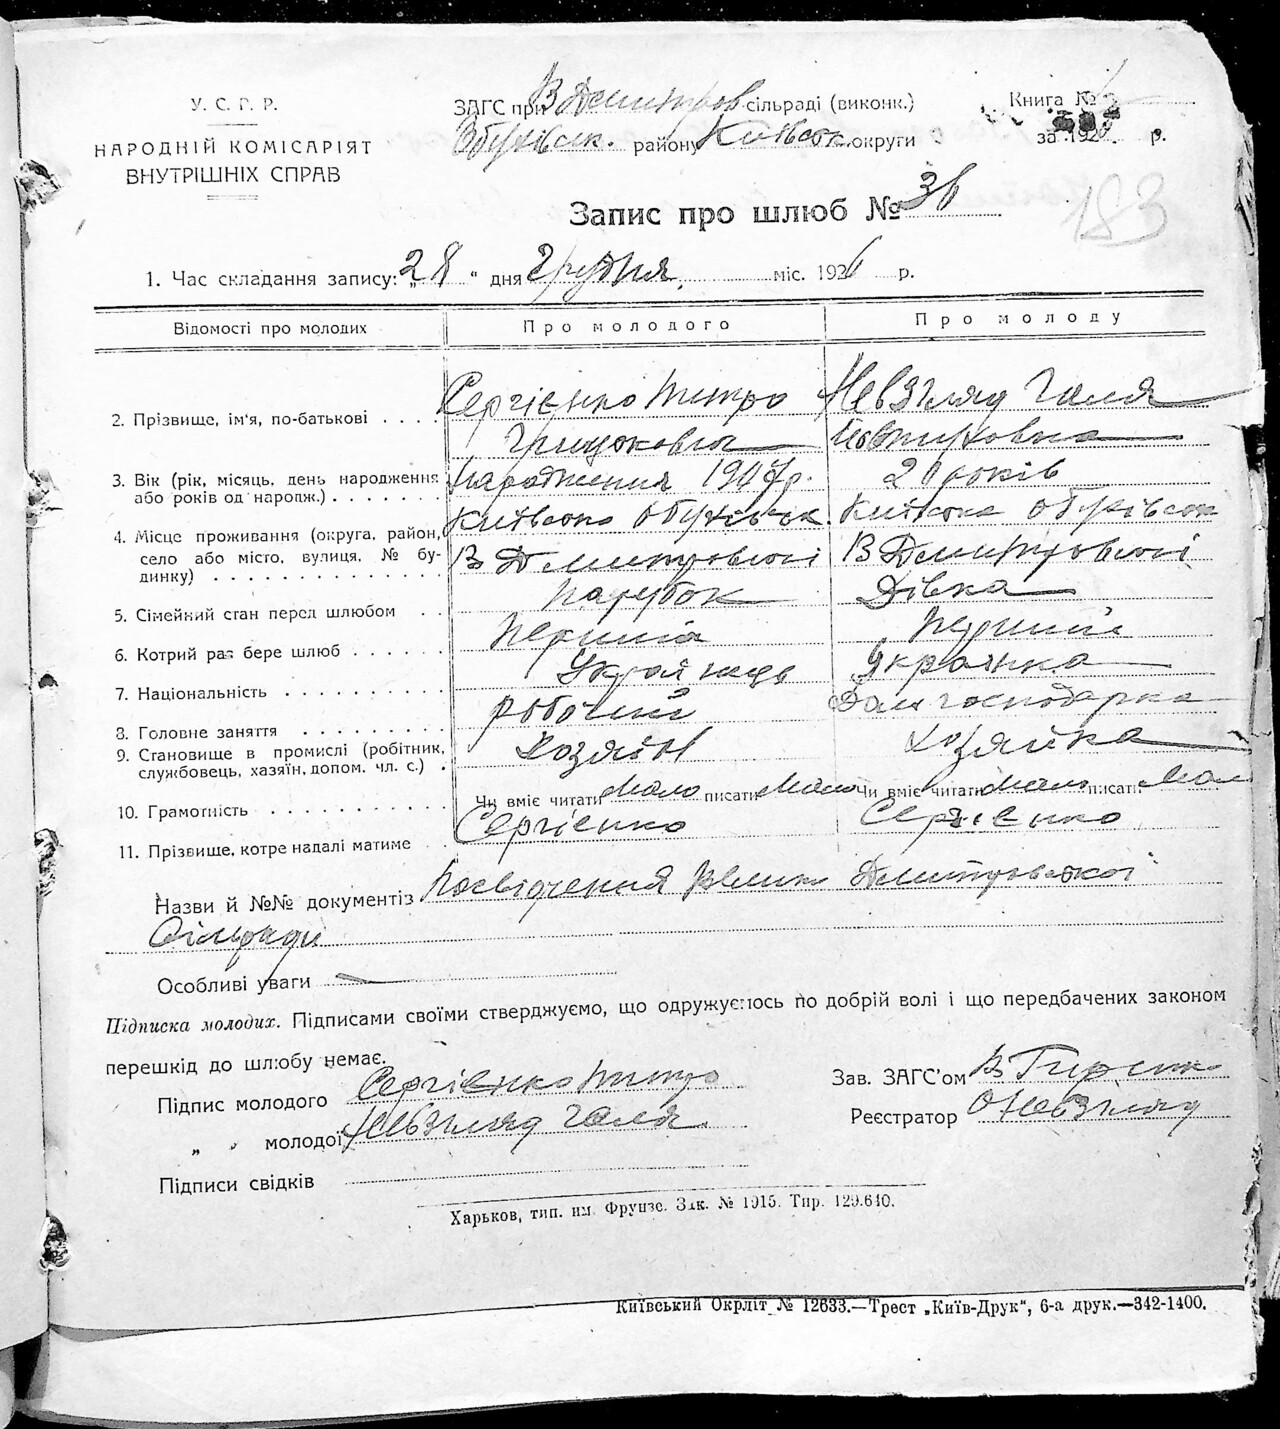 У. С. Р. Р.
НАРОДНІЙ КОМІСАРІЯТ
ВНУТРІШНІХ СПРАВ
ЗАГС при В Дмитров сільраді (виконк.)
Обухівськ. району Київськ. округи
Книга №
за 192 р.
183
Запис про шлюб № 36
1. Час складання запису: „28 “ дня Грудня міс. 1926 р.
Відомості про молодих Про молодого Про молоду
2. Прізвище, ім'я, по-батькові . . . . Сергієнко Митро Невзгляд Галя
3. Вік (рік, місяць, день народження або років од народж.) . . . . . . . народження 1907р. 20 років
4. Місце проживання (округа, район, село або місто, вулиця, № будинку) . . . . . . . . . . . Київська Обухівськ. В Дмитровичі Київська Обухівськ В Дмитровичі
5. Сімейний стан перед шлюбом . . Парубок Дівка
6. Котрий раз бере шлюб . . . . . .
7. Національність . . . . . . . . . Українець Українка
8. Головне заняття . . . . . . . . робочий Дом господарка
9. Становище в промислі (робітник, службовець, хазяїн, допом. чл. с.) . Хозяїн хозяйка
10. Грамотність . . . . . . . . . Чи вміє читати Мало писати Мало Чи вміє читати Мало писати Мало
11. Прізвище, котре надалі матиме . . Сергієнко Сергієнко
Назви й №№ документів Посвідчення Велико Дмитровської
Сільради
Особливі уваги —
Підписка молодих. Підписами своїми стверджуємо, що одружуємось по добрій волі і що передбачених законом
перешкід до шлюбу немає.
Підпис молодого Сергієнко Митро
„ „ молодої Невзгляд Галя
Підписи свідків
Зав. ЗАГС'ом
Реєстратор О Невзгляд
Харьков, тип. им. Фрунзе. Зак. № 1915. Тир. 129.640.
Київський Окрліт № 12633.—Трест „Київ-Друк“, 6-а друк.—342-1400.